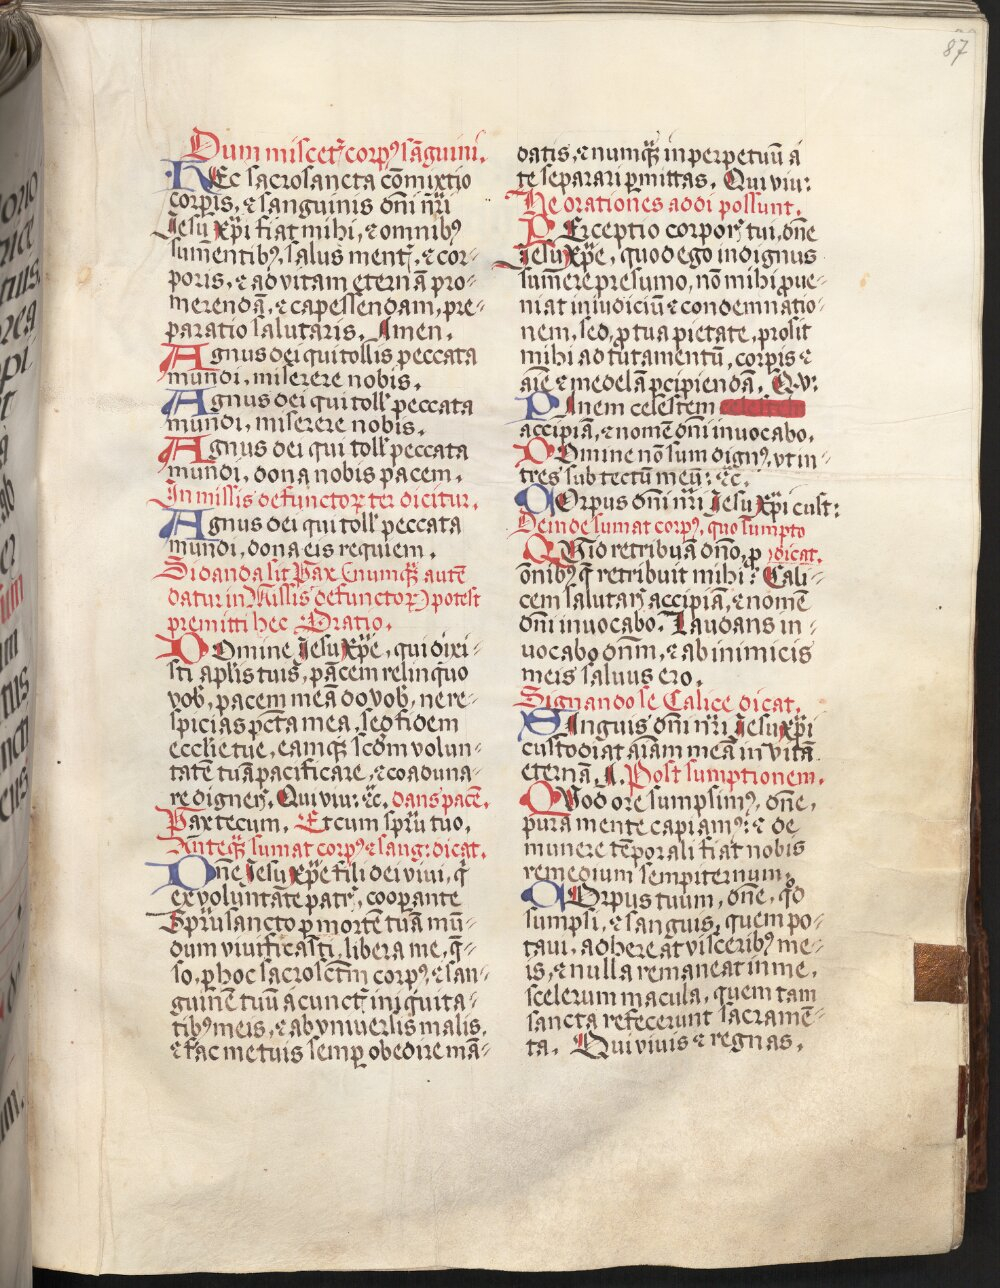 87
Dum miscet᷑ corpꝰ sãguini.
HEc sacrosancta cõmixtio
corpis, ⁊ sanguinis dñi nr̃i
Jesu xp̃i fiat mihi, ⁊ omnibꝰ
sumentibꝰ, salus ment᷑, ⁊ cor-
poris, ⁊ ad vitam eternã pro-
merendã, ⁊ capessendam, pre-
paratio salutaris. Amen.
Agnus dei qui tollis peccata
mundi, miserere nobis.
Agnus dei qui toll᷑ peccata
mundi, miserere nobis.
Agnus dei qui toll᷑ peccata
mundi, dona nobis pacem.
In missis defunctoꝝ ter dicitur.
Agnus dei qui toll᷑ peccata
mundi, dona eis requiem.
Si danda sit Pax (nunqꝫ autẽ
datur in Missis defunctoꝝ) potest
premitti hec Oratio.
DOmine Jesu Xp̃e, qui dixi-
sti aplis̃ tuis, pacem relinquo
vob̃, pacem meã do vob̃, ne re-
spicias pctã mea, sed fidem
ecclie tue, eamqꝫ scdm̃ volun-
tatẽ tuã pacificare, ⁊ coaduna-
re digner᷑. Qui viu: ⁊c. dans pacẽ.
Pax tecum. Et cum spũ tuo.
Anteqꝫ sumat corpꝰ ⁊ sang: dicat.
DÑe Jesu Xp̃e fili dei viui, q̃
ex volũtate patr᷑, coopante
Spũ sancto p mortẽ tuã mũ-
dum viuificasti, libera me, q̃-
so, p hoc sacrosctm̃ corpꝰ, ⁊ san-
guinẽ tuũ a cunct᷑ iniquita-
tibꝰ meis, ⁊ ab vniuersis malis.
⁊ fac me tuis semp obedire mã-
datis, ⁊ numqꝫ in perpetuũ a
te separari pmittas. Qui viu:
He orationes addi possunt.
PErceptio corpor᷑ tui, dñe
Jesu Xp̃e, quod ego indignus
sumere presumo, nõ mihi pue-
niat in iudiciũ ⁊ condemnatio-
nem, sed, p tua pietate, prosit
mihi ad tutamentũ, corpis ⁊
aĩe ⁊ medelã pcipiendã. Q. v:
PAnem celestem celestem
accipiã, ⁊ nomẽ dñi inuocabo.
DOmine nõ sum dignꝰ, vt in-
tres sub tectũ meũ: ⁊c.
COrpus dñi nr̃i Jesu Xp̃i cust:
Deinde sumat corpꝰ, quo sumpto
QVid retribuã dño, p dicat.
õnibꝰ q̃ retribuit mihi? Cali-
cem salutar᷑ accipiã, ⁊ nomẽ
dñi inuocabo. Laudans in-
uocabo dñm, ⁊ ab inimicis
meis saluus ero.
Signando se Calice dicat.
SAnguis dñi nr̃i Jesu xp̃i
custodiat aĩam meã in vitã
eternã. A. Post sumptionem.
QVod ore sumpsimꝰ, dñe,
pura mente capiamꝰ: ⁊ de
munere tẽporali fiat nobis
remedium sempiternum.
COrpus tuum, dñe, q̃d
sumpsi, ⁊ sanguis, quem po-
taui, adhereat visceribꝰ me-
is, ⁊ nulla remaneat in me,
scelerum macula, quem tam
sancta refecerunt sacramẽ-
ta. Qui viuis ⁊ regnas.